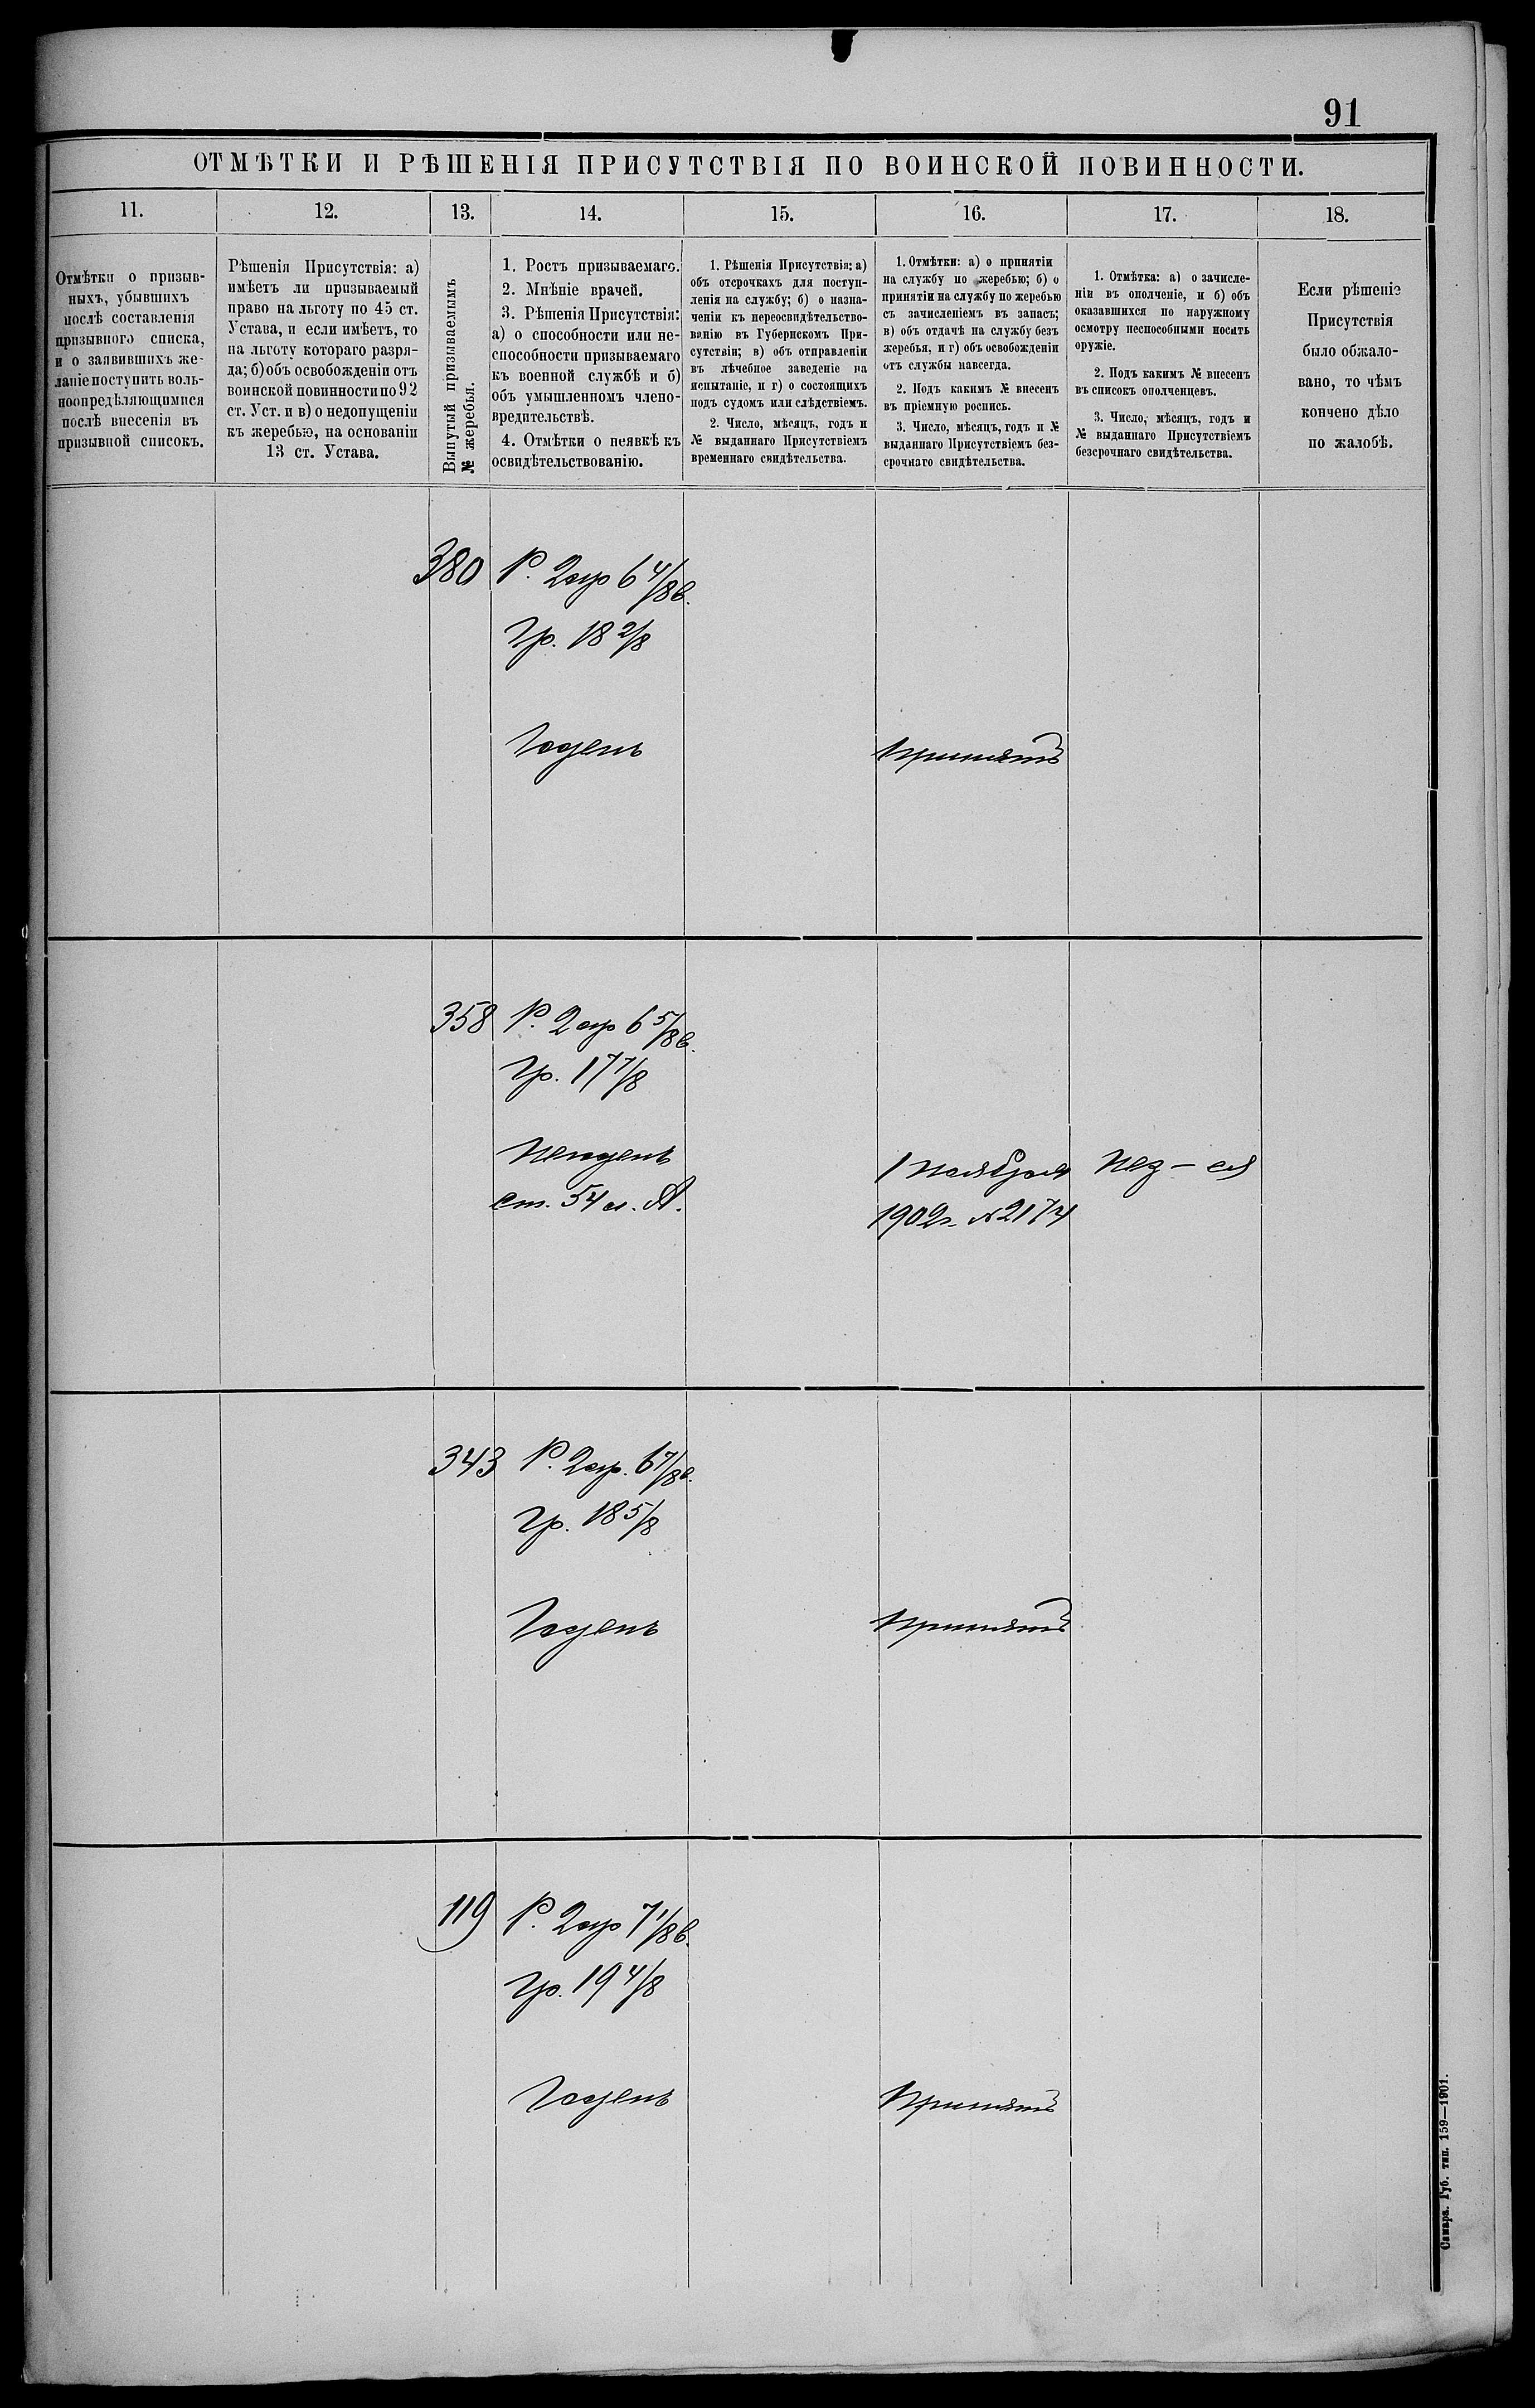 91
ОТМѢТКИ И РѢШЕНІЯ ПРИСУТСТВІЯ ПО ВОИНСКОЙ ПОВИННОСТИ.
11.
12.
13.
14.
15.
16.
17.
18.
Отмѣтки о призыв-
ныхъ, убывшихъ
послѣ составленія
призывного списка,
и о заявившихъ же-
ланіе поступить воль-
ноопредѣляющимися
послѣ внесенія въ
призывной списокъ.
Рѣшенія Присутствія: а)
имѣетъ ли призываемый
право на льготу по 45 ст.
Устава, и если имѣетъ, то
на льготу котораго разря-
да; б) объ освобожденіи отъ
воинской повинности по 92
ст. Уст. и в) о недопущеніи
къ жеребью, на основаніи
13 ст. Устава.
Вынутый призываемымъ
№ жеребья.
1. Ростъ призываемаго.
2. Мнѣніе врачей.
3. Рѣшенія Присутствія:
а) о способности или не-
способности призываемаго
къ военной службѣ и б)
объ умышленномъ члено-
вредительствѣ.
4. Отмѣтки о неявкѣ къ
освидѣтельствованію.
1. Рѣшенія Присутствія: а)
объ отсрочкахъ для поступ-
ленія на службу; б) о назна-
ченіи къ переосвидѣтельство-
ванію въ Губернскомъ При-
сутствіи; в) объ отправленіи
въ лѣчебное заведеніе на
испытаніе, и г) о состоящихъ
подъ судомъ или слѣдствіемъ.
2. Число, мѣсяцъ, годъ и
№ выданнаго Присутствіемъ
временнаго свидѣтельства.
1. Отмѣтки: а) о принятіи
на службу по жеребью; б) о
принятіи на службу по жеребью
съ зачисленіемъ въ запасъ;
в) объ отдачѣ на службу безъ
жеребья, и г) объ освобожденіи
отъ службы навсегда.
2. Подъ какимъ № внесенъ
въ пріемную роспись.
3. Число, мѣсяцъ, годъ и №
выданнаго Присутствіемъ без-
срочнаго свидѣтельства.
1. Отмѣтка: а) о зачисле-
ніи въ ополченіе, и б) объ
оказавшихся по наружному
осмотру неспособными носить
оружіе.
2. Подъ какимъ № внесенъ
въ списокъ ополченцевъ.
3. Число, мѣсяцъ, годъ и
№ выданнаго Присутствіемъ
безсрочнаго свидѣтельства.
Если рѣшеніе
Присутствія
было обжало-
вано, то чѣмъ
кончено дѣло
по жалобѣ.
380 Р. 2 ар 6 4/8 в.
Гр. 18 2/8
Годенъ Принятъ
358 Р. 2 ар 6 5/8 в.
Гр. 17 7/8
Негоденъ
ст. 54 л. А.
1 Ноября
1902 г. № 2174
343 Р. 2 ар. 6 7/8 в.
Гр. 18 5/8
Годенъ Принятъ
119 Р. 2 ар 7 1/8 в.
Гр. 19 4/8
Годенъ Принятъ
Самара. Губ. тип. 159—1901.